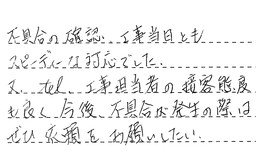 不具合の確認、工事当日とも
スピーディーな対応でした。
又、tel、工事担当者の接客態度
も良く今後、不具合が発生の際は
ぜひ依頼をお願いしたい。